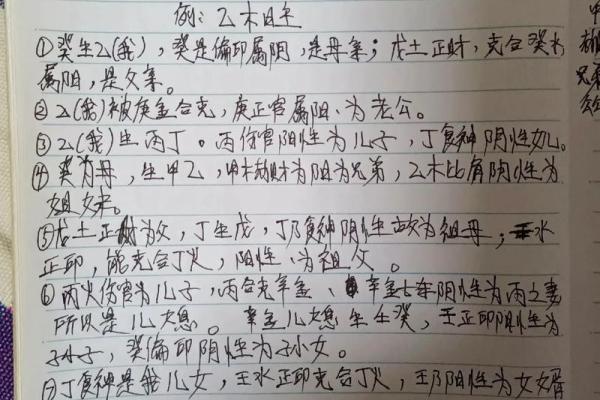 例：乙木日主
①癸生乙(我)，癸是偏印属阴，是母亲；戊土正财，克合癸水
属阳，是父亲。
②乙(我)被庚金合克，庚正官属阳、为老公。
③乙(我)生丙丁。丙伤官阳性为儿子，丁食神阴性女儿。
④癸为母，生甲乙，甲木劫财为阳为兄弟，乙木比肩阴性为
姐妹。
⑤戊土正财为父，丁生戊，丁乃食神阴性故为祖母；壬水
正印，能克合丁火，阳性、为祖父。
⑥丙火伤官为儿子，丙合克辛金、辛金七杀阴性为丙之妻
所以是儿媳。辛金儿媳生壬癸，壬正印阳性为
孙子，癸偏印阴性为孙女。
⑦丁食神是我儿女，壬水正印克合丁火，壬乃阳性为女婿
甲